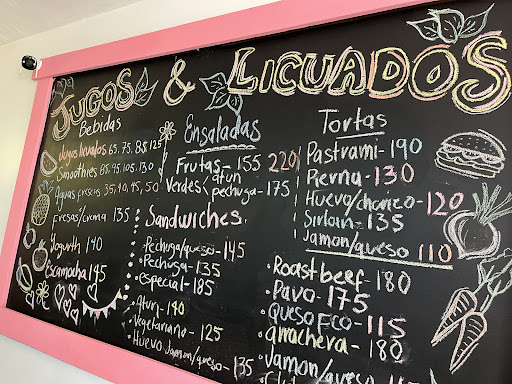 JUGOS & LICUADOS
Bebidas
Jugos licuados 65, 75, 85, 125
Smoothies 85, 95, 105, 130
Aguas frescas 35, 40, 45, 50
Fresas/crema 135
Yogurth 140
Escamocha 145
Ensaladas
Frutas - 155 220
Verdes atún
pechuga - 175
Sandwiches
• Pechuga/queso - 145
• Pechuga - 135
• especial - 185
• Atún - 140
• Vegetariano - 125
• Huevo Jamon/queso - 135
Tortas
Pastrami - 190
Pierna - 130
Huevo/chorizo - 120
Sirloin - 135
Jamon/queso 110
• Roast beef - 180
• Pavo - 175
• Queso Fco - 115
• arrachera - 180
• Jamon/queso - 115